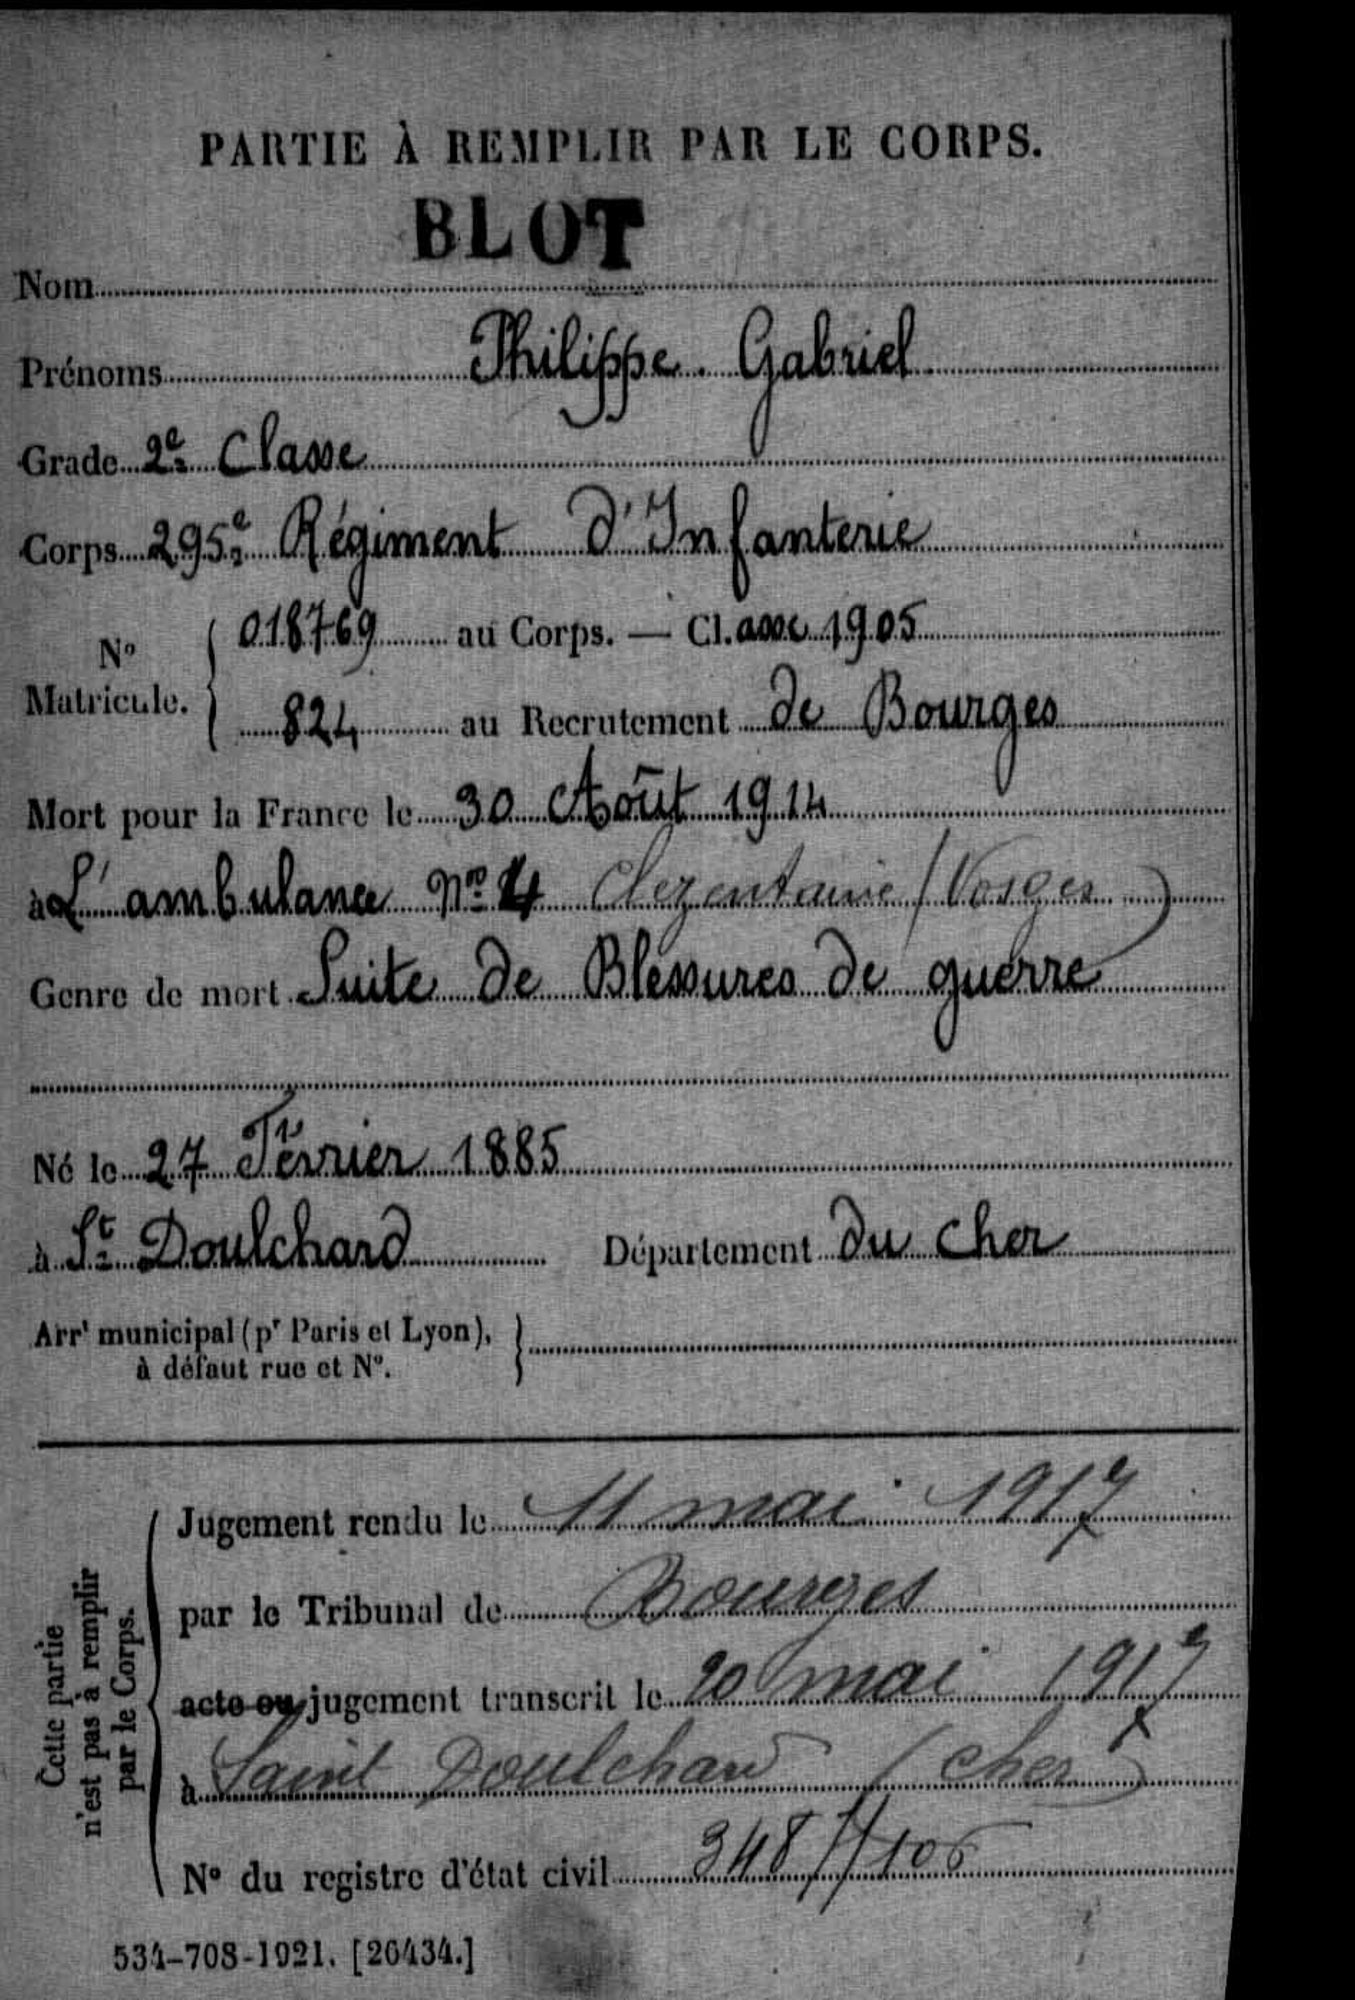 PARTIE À REMPLIR PAR LE CORPS.
BLOT
Nom
Prénoms Philippe. Gabriel
Grade 2e Classe
Corps 295e Régiment d'Infanterie
No Matricule.
018769 au Corps. — Cl.asse 1905
824 au Recrutement de Bourges
Mort pour la France le 30 Août 1914
à L'ambulance No 4 Clezentaine (Vosges)
Genre de mort Suite de Blessures de guerre
Né le 27 Février 1885
à St Doulchard Département du Cher
Arrt municipal (pr Paris et Lyon),
à défaut rue et No.
Cette partie
n'est pas à remplir
par le Corps.
Jugement rendu le 11 mai 1917
par le Tribunal de Bourges
acte ou jugement transcrit le 20 mai 1917
à Saint Doulchard (Cher)
No du registre d'état civil
534-708-1921. [26434.]